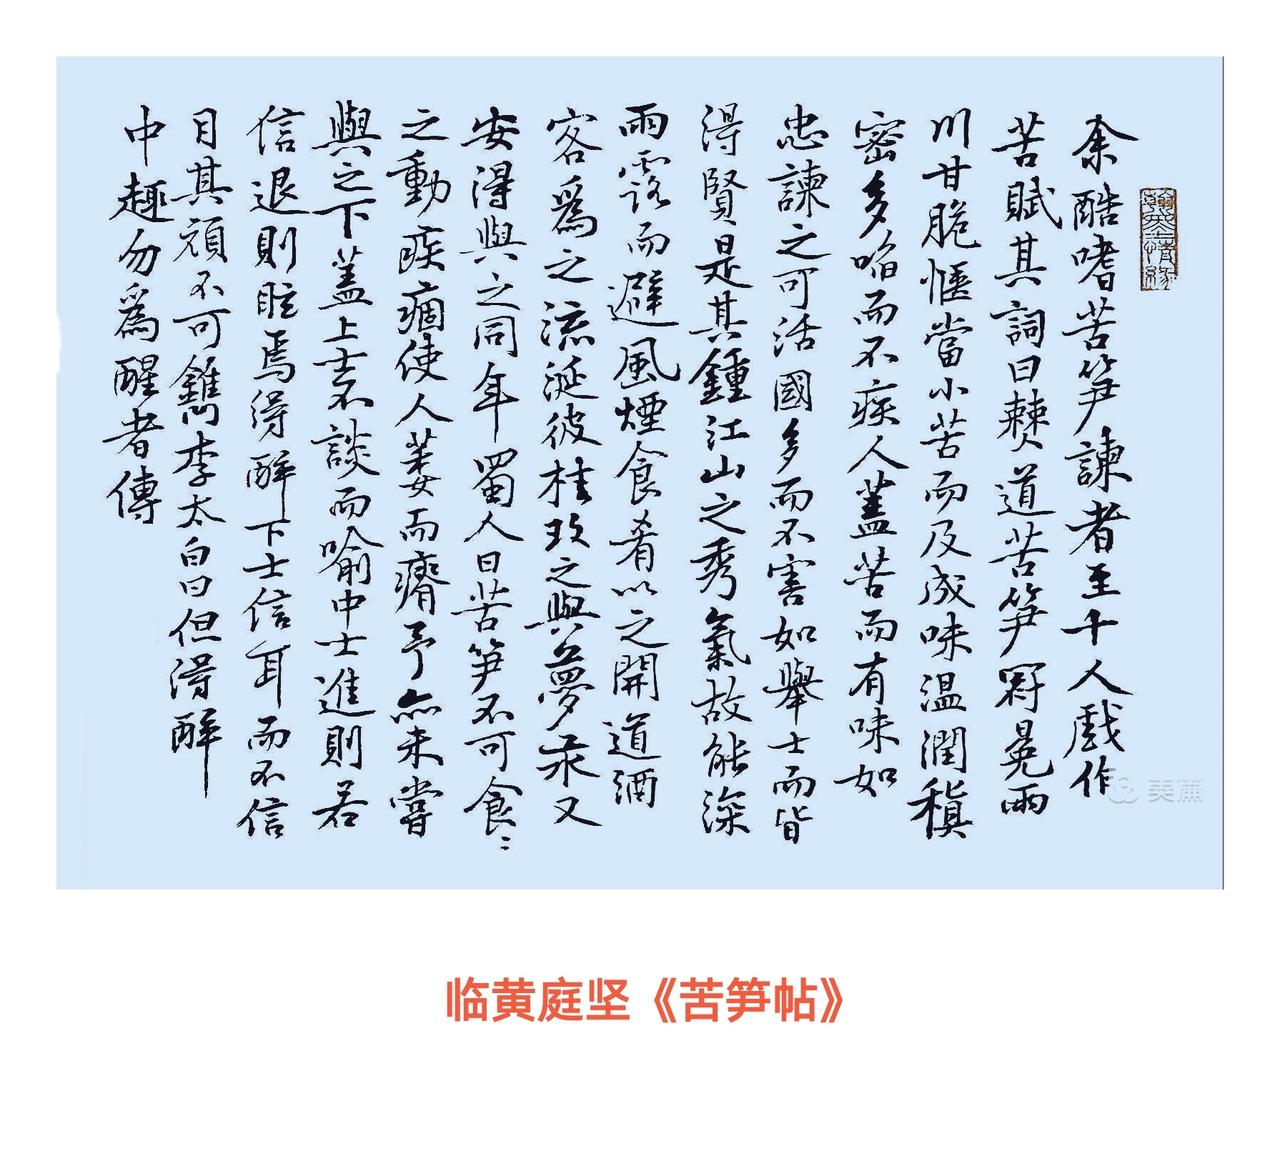 余酷嗜苦笋諫者至十人戲作
苦賦其詞曰僰道苦笋冠冕兩
川甘脆愜當小苦而及成味温潤稹
密多啗而不疾人蓋苦而有味如
忠諫之可活國多而不害如舉士而皆
得賢是其鍾江山之秀氣故能深
雨露而避風煙食肴以之開道酒
客爲之流涎彼桂玫之與夢汞又
安得與之同年蜀人曰苦笋不可食〻
之動疾痼使人萎而瘠予亦未嘗
與之下蓋上士不談而喻中士進則若
信退則眩焉得醉下士信耳而不信
目其頑不可鐫李太白曰但得醉
中趣勿爲醒者傳
翰墨情緣
美篇
临黄庭坚《苦笋帖》